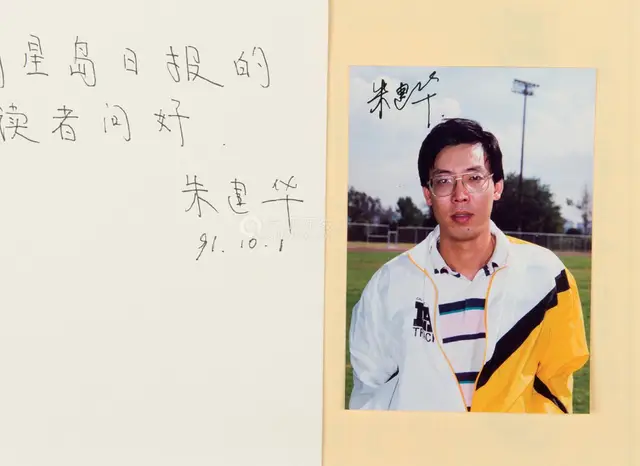 星岛日报的
读者问好.
朱建华
91.10.1
朱建华